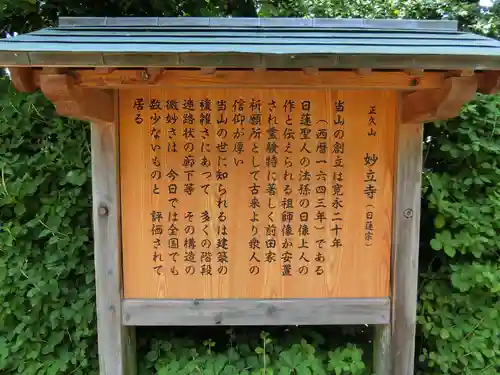 正久山 妙立寺（日蓮宗）
当山の創立は寛永二十年
（西暦一六四三年）である
日蓮聖人の法孫の日像上人の
作と伝えられる祖師像が安置
され霊験特に著しく前田家
祈願所として古来より衆人の
信仰が厚い
当山の世に知られるは建築の
複雑さにあって 多くの階段
迷路状の廊下等 その構造の
微妙さは 今日では全国でも
数少ないものと 評価されて
居る